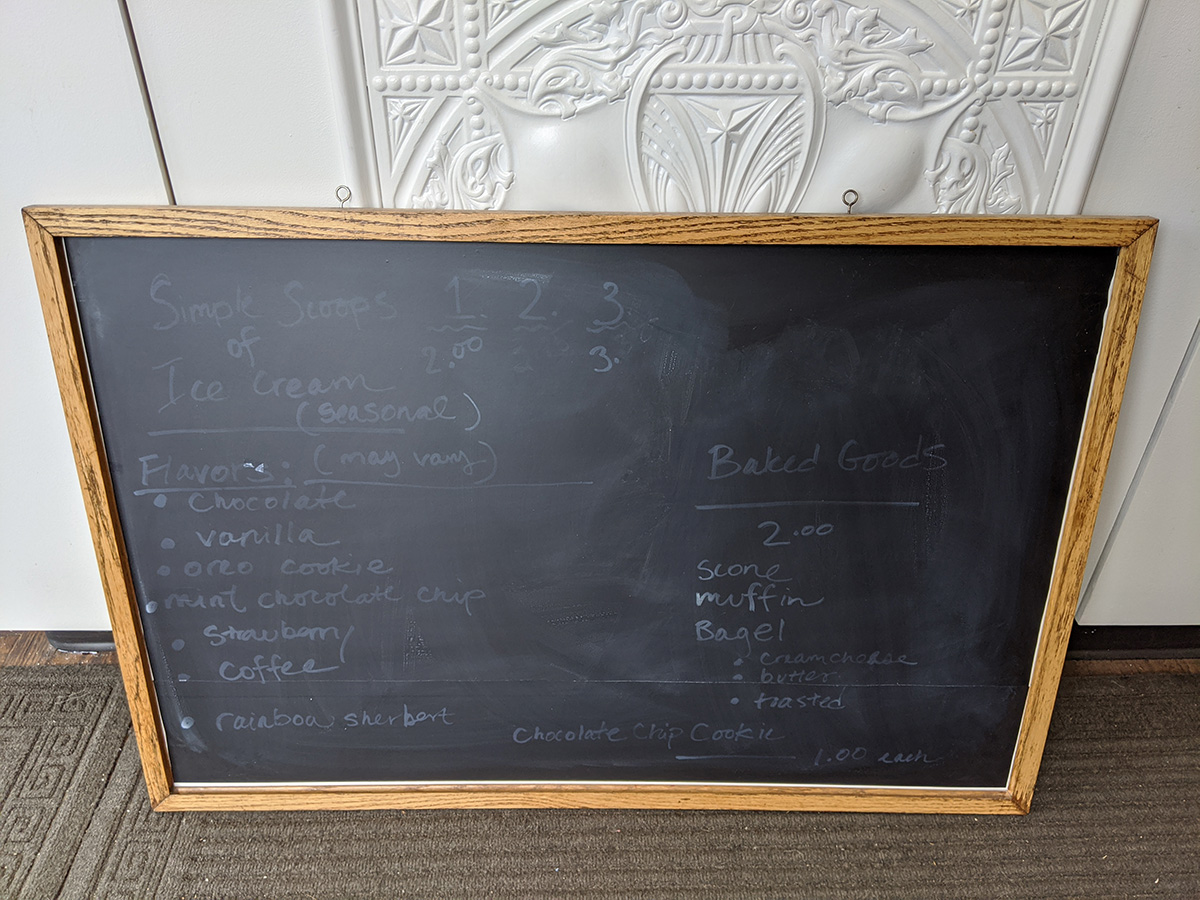 Simple Scoops 1. 2. 3
of 2.00 3.
Ice Cream
(seasonal)
Flavors: (may vary)
• Chocolate
• vanilla
• oreo cookie
• mint chocolate chip
• strawberry
• coffee
• rainboa sherbert
Baked Goods
2.00
scone
muffin
Bagel
• creamcheese
• butter
• toasted
Chocolate Chip Cookie
1.00 each